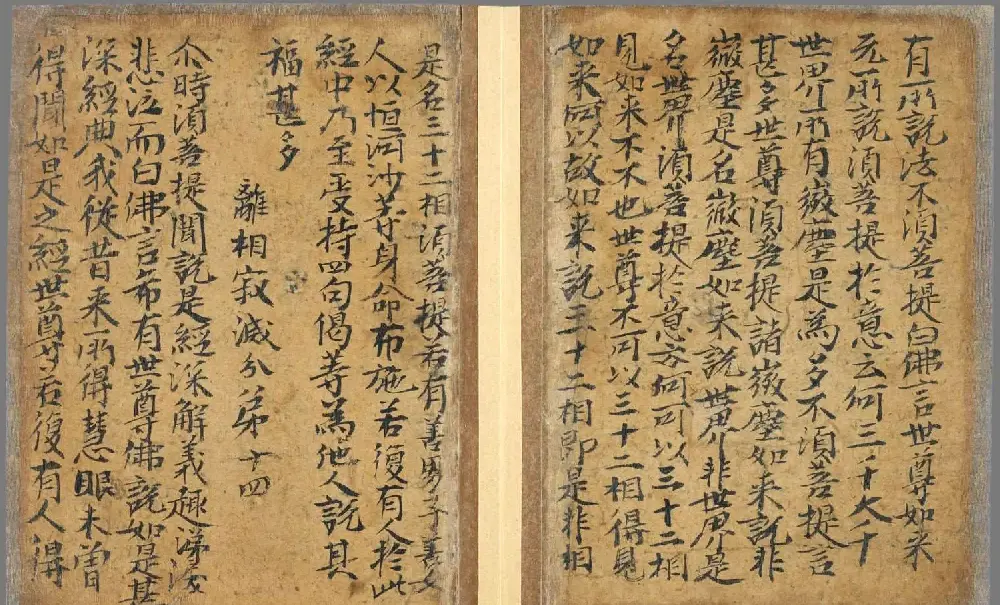 有所說法不須菩提白佛言世尊如来
无所說須菩提扵意云何三千大千
世界所有微塵是為多不須菩提言
甚多世尊須菩提諸微塵如来說非
微塵是名微塵如来說世界非世界是
名世界須菩提扵意云何可以三十二相
見如来不不也世尊不可以三十二相得見
如来何以故如来說三十二相即是非相
是名三十二相須菩提若有善男子善女
人以恒河沙等身命布施若復有人扵此
經中乃至受持四句偈等為他人說其
福甚多
離相寂滅分弟十四
尒時須菩提聞說是經深解義趣涕淚
悲泣而白佛言希有世尊佛說如是甚
深經典我從昔来所得慧眼未曾
得聞如是之經世尊若復有人得